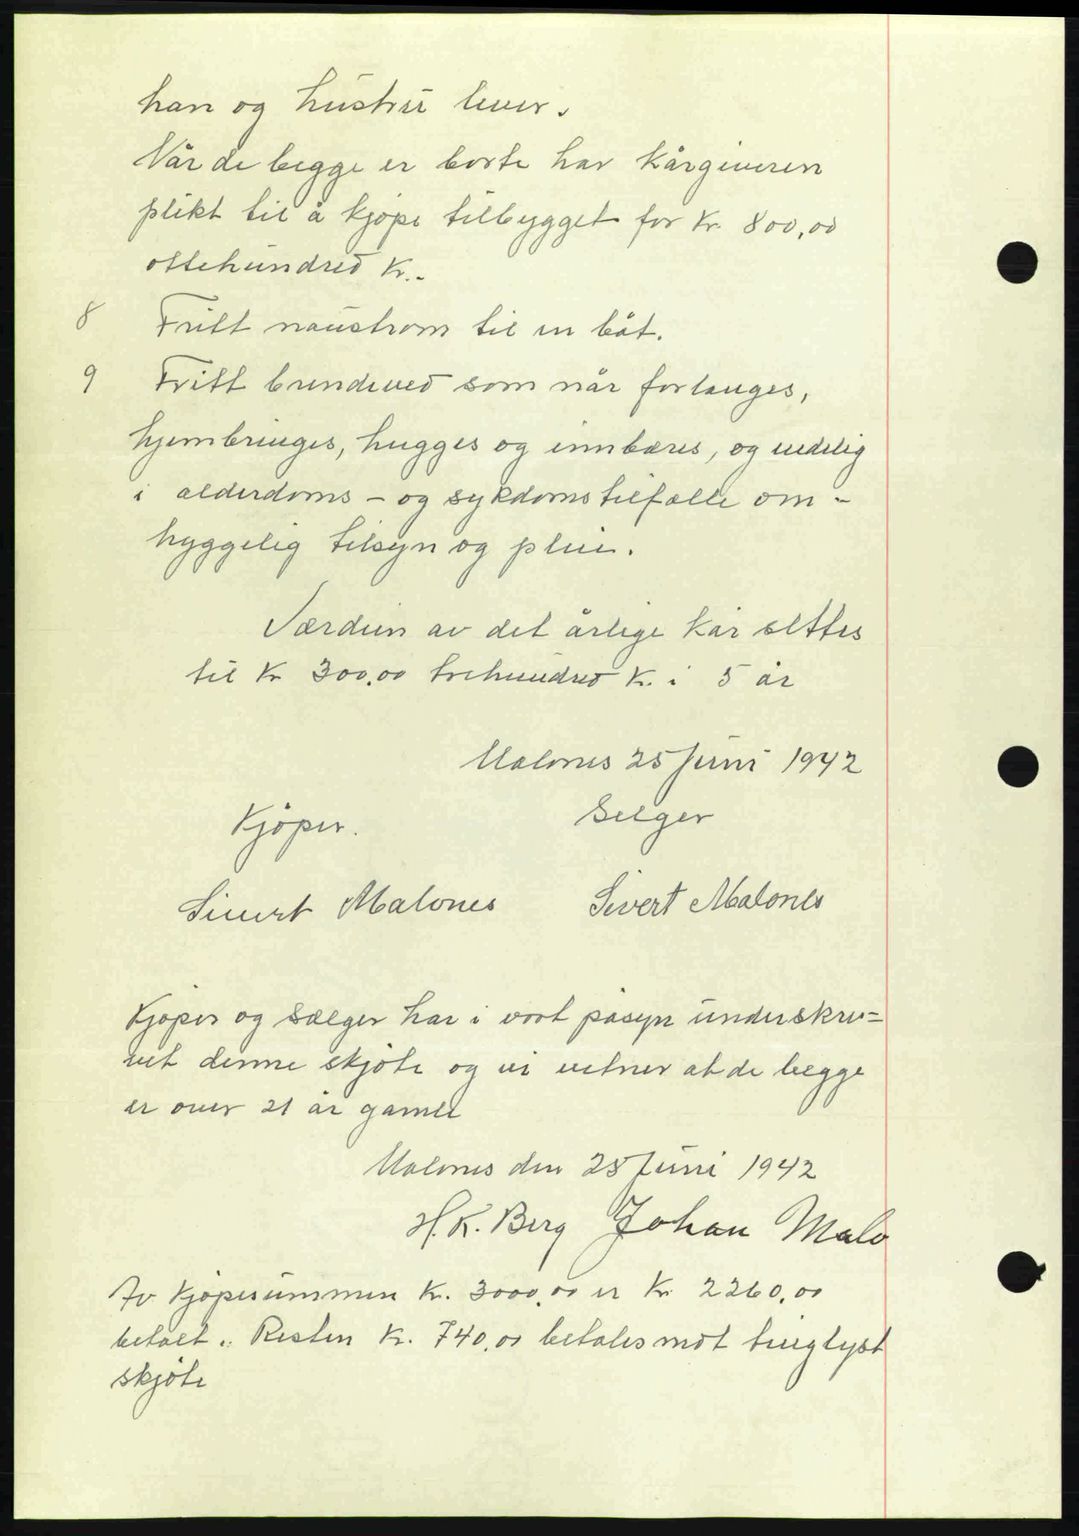 han og hustru lever.
Når de begge er borte har kårgiveren
plikt til å kjøpe tilbygget for kr 800,00
ottehundred kr.-
8 Fritt naustrom til en båt.
9 Fritt brendeved som når forlanges,
hjembringes, hugges og innbæres, og endelig
i alderdoms- og sykdomstilfælle om-
hyggelig tilsyn og pleie.
Værdien av det årlige kår settes
til kr 300,00 trehundred kr. i 5 år
Malones 25 Juni 1942
Kjøper. Selger
Sivert Malones Sivert Malones
Kjøper og sælger har i vort påsyn underskre=
vet denne skjøte og vi vetner at de begge
er over 21 år gamle
Malones den 25 Juni 1942
H.K. Berg Johan Malo
Av kjøpesummen kr. 3000,00 er kr 2260,00
betalt. Resten kr. 740,00 betales mot tinglyst
skjøte